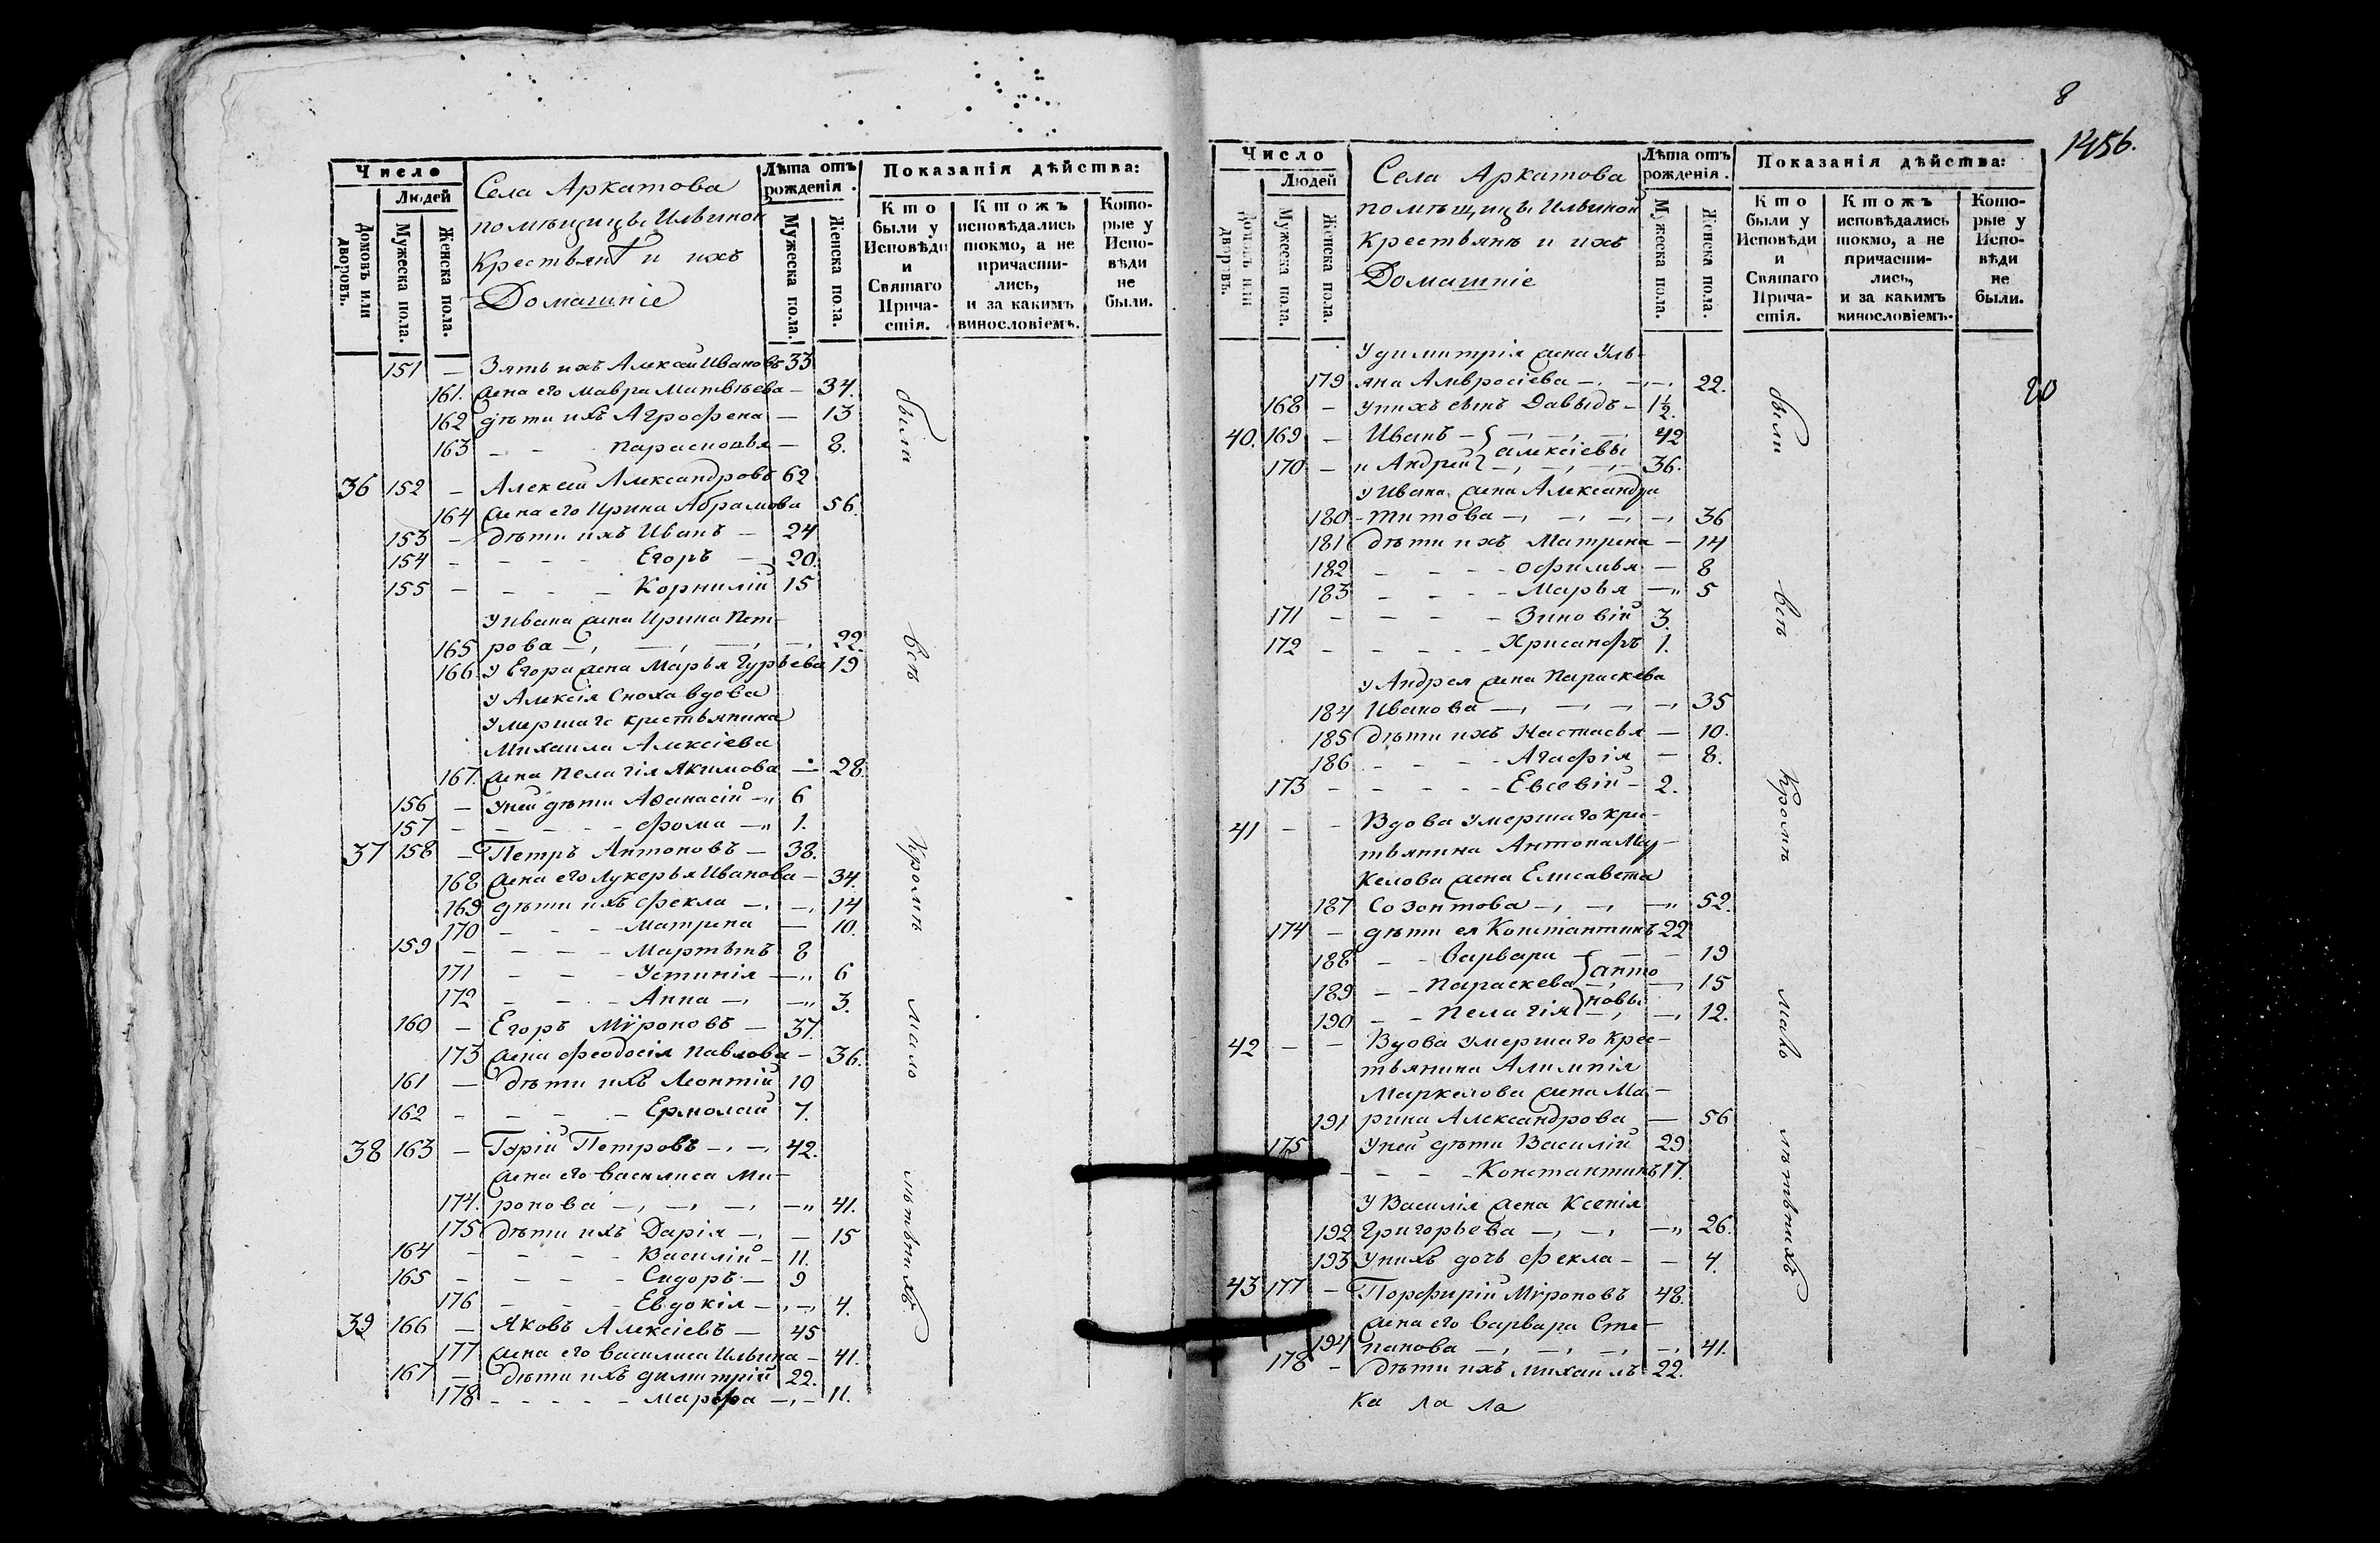 Число
Людей
Домовъ или дворовъ.
Мужеска пола.
Женска пола.
Села Аркатова
помѣщицы Ильиной
Крестьянѣ и ихъ
Домашніе
Лѣта отъ рожденія.
Мужеска пола.
Женска пола.
Показанія дѣйства:
Кто были у Исповѣди и Святаго Прича-стія.
Ктожъ исповѣдались токмо, а не причасти-лись, и за какимъ винословіемъ.
Кото-рые у Испо-вѣди не были.
151 — Зять ихъ Алексѣй Ивановъ 33
161. жена его Мавра Матвѣева — 34.
162 дѣти ихъ Агрофена — 13
163 — - Парасковья — 8.
36 152 — Алексѣй Александровъ 62
164 жена его Ирина Абрамова 56.
153 — дѣти ихъ Иванъ — 24
154 - - - - Егоръ — 20.
155 — - - - Корнилій 15
У Ивана жена Ирина Пет-
165 рова —, —, —, —, 22.
166 У Егора жена Марья Гурьева 19
У Алексія Сноха вдова
Умершаго крестьянина
Михаила Алексіева
167. жена Пелагія Якимова — 28.
156 — У ней дѣти Афанасій —„ 6
157 - - - - Фома —„ 1.
37 158 — Петръ Антоновъ — 38.
168 жена его Лукерья Иванова — 34.
169 дѣти ихъ Фекла —, —, 14
170 - - - Матрена — 10.
159 — - - - Мартынъ 8
171 - - - Устинія —„ 6
172 - - - Анна —, —„ 3.
160 — Егоръ Мѵроновъ — 37.
173 жена Феодосія Павлова — 36.
161 — дѣти ихъ Леонтій 10
162 - - - - Ермолай 7.
38 163 — Гурій Петровъ —, —, 42.
жена его Василиса Ми-
174. ронова —, —, —, —„ 41.
175 дѣти ихъ Дарія —, — 15
164 - - - - Василій — 11.
165 - - - - Сидоръ — 9
176 - - - Евдокія —, —, 4.
39 166 — Яковъ Алексіевъ — 45
177 жена его Василиса Ильина — 41.
167 — дѣти ихъ Димитрій 22.
178 - - - - Марфа —, — 11.
были всѣ Кромѣ мало лѣтныхъ
8
1456.
20
Число
Людей
Домовъ или дворовъ.
Мужеска пола.
Женска пола.
Села Аркатова
помѣщицы Ильиной
Крестьянѣ и ихъ
Домашніе
Лѣта отъ рожденія.
Мужеска пола.
Женска пола.
Показанія дѣйства:
Кто были у Исповѣди и Святаго Прича-стія.
Ктожъ исповѣдались токмо, а не причасти-лись, и за какимъ винословіемъ.
Кото-рые у Испо-вѣди не были.
У Димитрія жена Уль-
179 яна Амвросіева —, —, —, 22.
168 — У нихъ сынъ Давыдъ — 1½.
40. 169 — Иванъ — } —, —, — 42
Алексіевы
170 — и Андрей } —, —, — 36.
У Ивана жена Александра
180 - Титова —, —, —, —, 36
181 дѣти ихъ Матрена — 14
182 - - - - Офимья — 8
183 - - - - Марья —„ 5
171 - - - - Зиновій 3.
172 - - - - Хрисанфъ 1.
У Андрея жена Параскева
184 Иванова —, —, —, —, 35
185 дѣти ихъ Настасья — 10.
186 - - - - Агафія — 8.
173 - - - - Евсевій - 2.
41 - - Вдова Умершаго кре-
тьянина Антона Мар-
келова жена Елисавета
187 Созонтова —, —, —„ 52.
174 — дѣти ея Константинъ 22
188 - - Варвара — 19
Анто
189 - - Параскева —, —, 15
новы
190 - - Пелагія —, —, 12.
42 - - Вдова Умершаго Крес-
тьянина Алимпія
Маркелова жена Ма-
191 рина Александрова — 56
175 У ней дѣти Василій 29
- - - Константинъ 17.
У Василія жена Ксенія
192 Григорьева —, —, —„ 26.
193 У нихъ дочь Фекла - - 4.
43 177 — Порфирій Мѵроновъ 48.
жена его Варвара Сте-
194 панова —, —, —, —, 41.
178 — дѣти ихъ Михаилъ 22.
были всѣ Кромѣ мало лѣтныхъ
ка ла ла